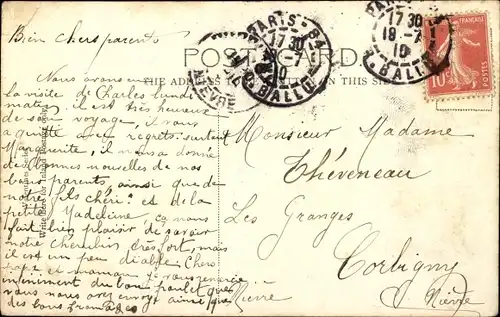 Bien chers parents
POST CARD.
THE ADDRESS ON THIS
PARIS
17 30
18-7
10
R. BALLU
PARIS-84
17 30
-7
10
R. BALLU
NIEVRE
10
Nous avons eu
la visite de Charles lundi
matin, il est très heureux
de son voyage, il nous
a quitté avec regrets surtout
Marguerite, il nous a donné
de bonnes nouvelles de nos
bons parents, ainsi que de
notre fils chéri et de la
petite Madeleine ça nous
fait bien plaisir de savoir
notre cherubin très fort, mais
il est un peu diable Chers
papa et maman je vous remercie
infiniment du bon poulet que
vous nous avez envoyé ainsi que
des bons fromages
Write here for Inland Postage only.
Monsieur Madame
Théveneau
Les Granges
Corbigny
Nièvre
Nièvre